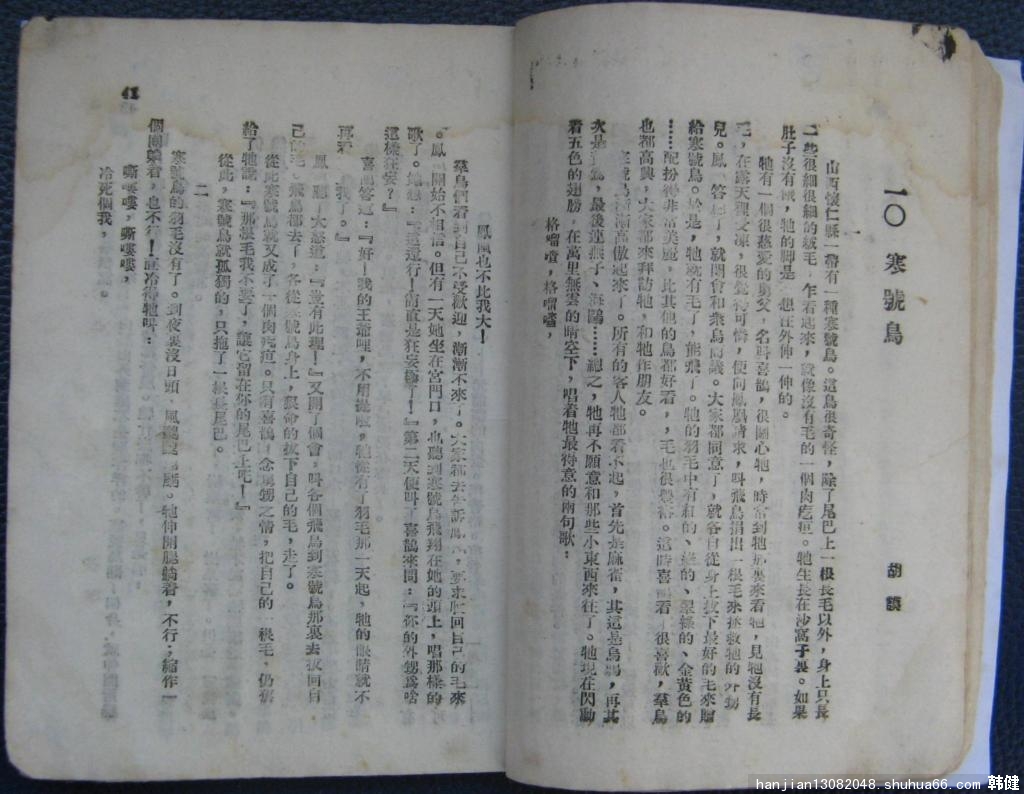 一〇 寒號鳥
胡 讀
一
山西懷仁縣一帶有一種寒號鳥。這鳥很奇怪，除了尾巴上一根長毛以外，身上只長
一些很細很細的絨毛，乍看起來，就像沒有毛的一個肉疙疸。牠生長在沙窩子裏。如果
肚子沒有餓，牠的脚是不想往外伸一伸的。
牠有一個很慈愛的舅父，名叫喜鵲，很關心牠，時常到牠那裏來看牠，見牠沒有長
毛，在露天裡受凍，很覺得可憐，便向鳳凰請求，叫飛鳥捐出一根毛來拯救牠的外甥
兒。鳳凰答應了，就開會和衆鳥商議。大家都同意了，就各自從身上拔下最好的毛來贈
給寒號鳥。於是，牠就有毛了，能飛了。牠的羽毛中有紅的、綠的、翠綠的、金黃色的
……配扮得非常美麗，比其他的鳥都好看，毛也很整齊。這時喜鵲看了很喜歡，羣鳥
也都高興，大家都來拜訪牠，和牠作朋友。
寒號鳥漸漸高傲起來了。所有的客人牠都看不起，首先是麻雀，其這是烏鴉，再其
次是喜鵲，最後連燕子、海鷗……總之，牠再不願意和那些小東西來往了。牠現在閃動
着五色的翅膀，在萬里無雲的晴空下，唱着牠最得意的兩句歌：
格囉噎，格囉噎，
鳳凰也不比我大！
羣鳥們看到自己不受歡迎，漸漸不來了。大家都去告訴鳳凰，要求收回自己的毛來
。鳳凰開始不相信。但有一天她坐在宮門口，也聽到寒號鳥飛翔在她的頭上，唱那樣的
歌了。她想：『這還行！簡直是狂妄極了！』第二天便叫了喜鵲來問：『你的外甥爲啥
這樣狂妄？』
喜鵲答道：『好！我的王爺哩，不用提啦，牠從有了羽毛那一天起，牠的眼睛就不
再看 我了。』
鳳凰聽了大怒道：『豈有此理！』又開了個會，叫各個飛鳥到寒號鳥那裏去拔回自
己的毛。飛鳥都去了，各從寒號鳥身上，狠命的拔下自己的毛，走了。
從此寒號鳥就又成了一個肉疙疸。只有喜鵲，念舅甥之情，把自己的一根毛，仍舊
給了牠說：『那根毛我不要了，讓它留在你的尾巴上吧！』
從此，寒號鳥就孤獨的，只拖了一根長尾巴。
二
寒號鳥的羽毛沒有了。到夜裏沒日頭，風颼颼 颳。牠伸開腿躺着，不行；縮作一
個團躺着，也不行！直冷得牠叫：
嘶嘍嘍，嘶嘍嘍，
冷死個我，
41
hanjian13082048.shuhua66.com 韩健